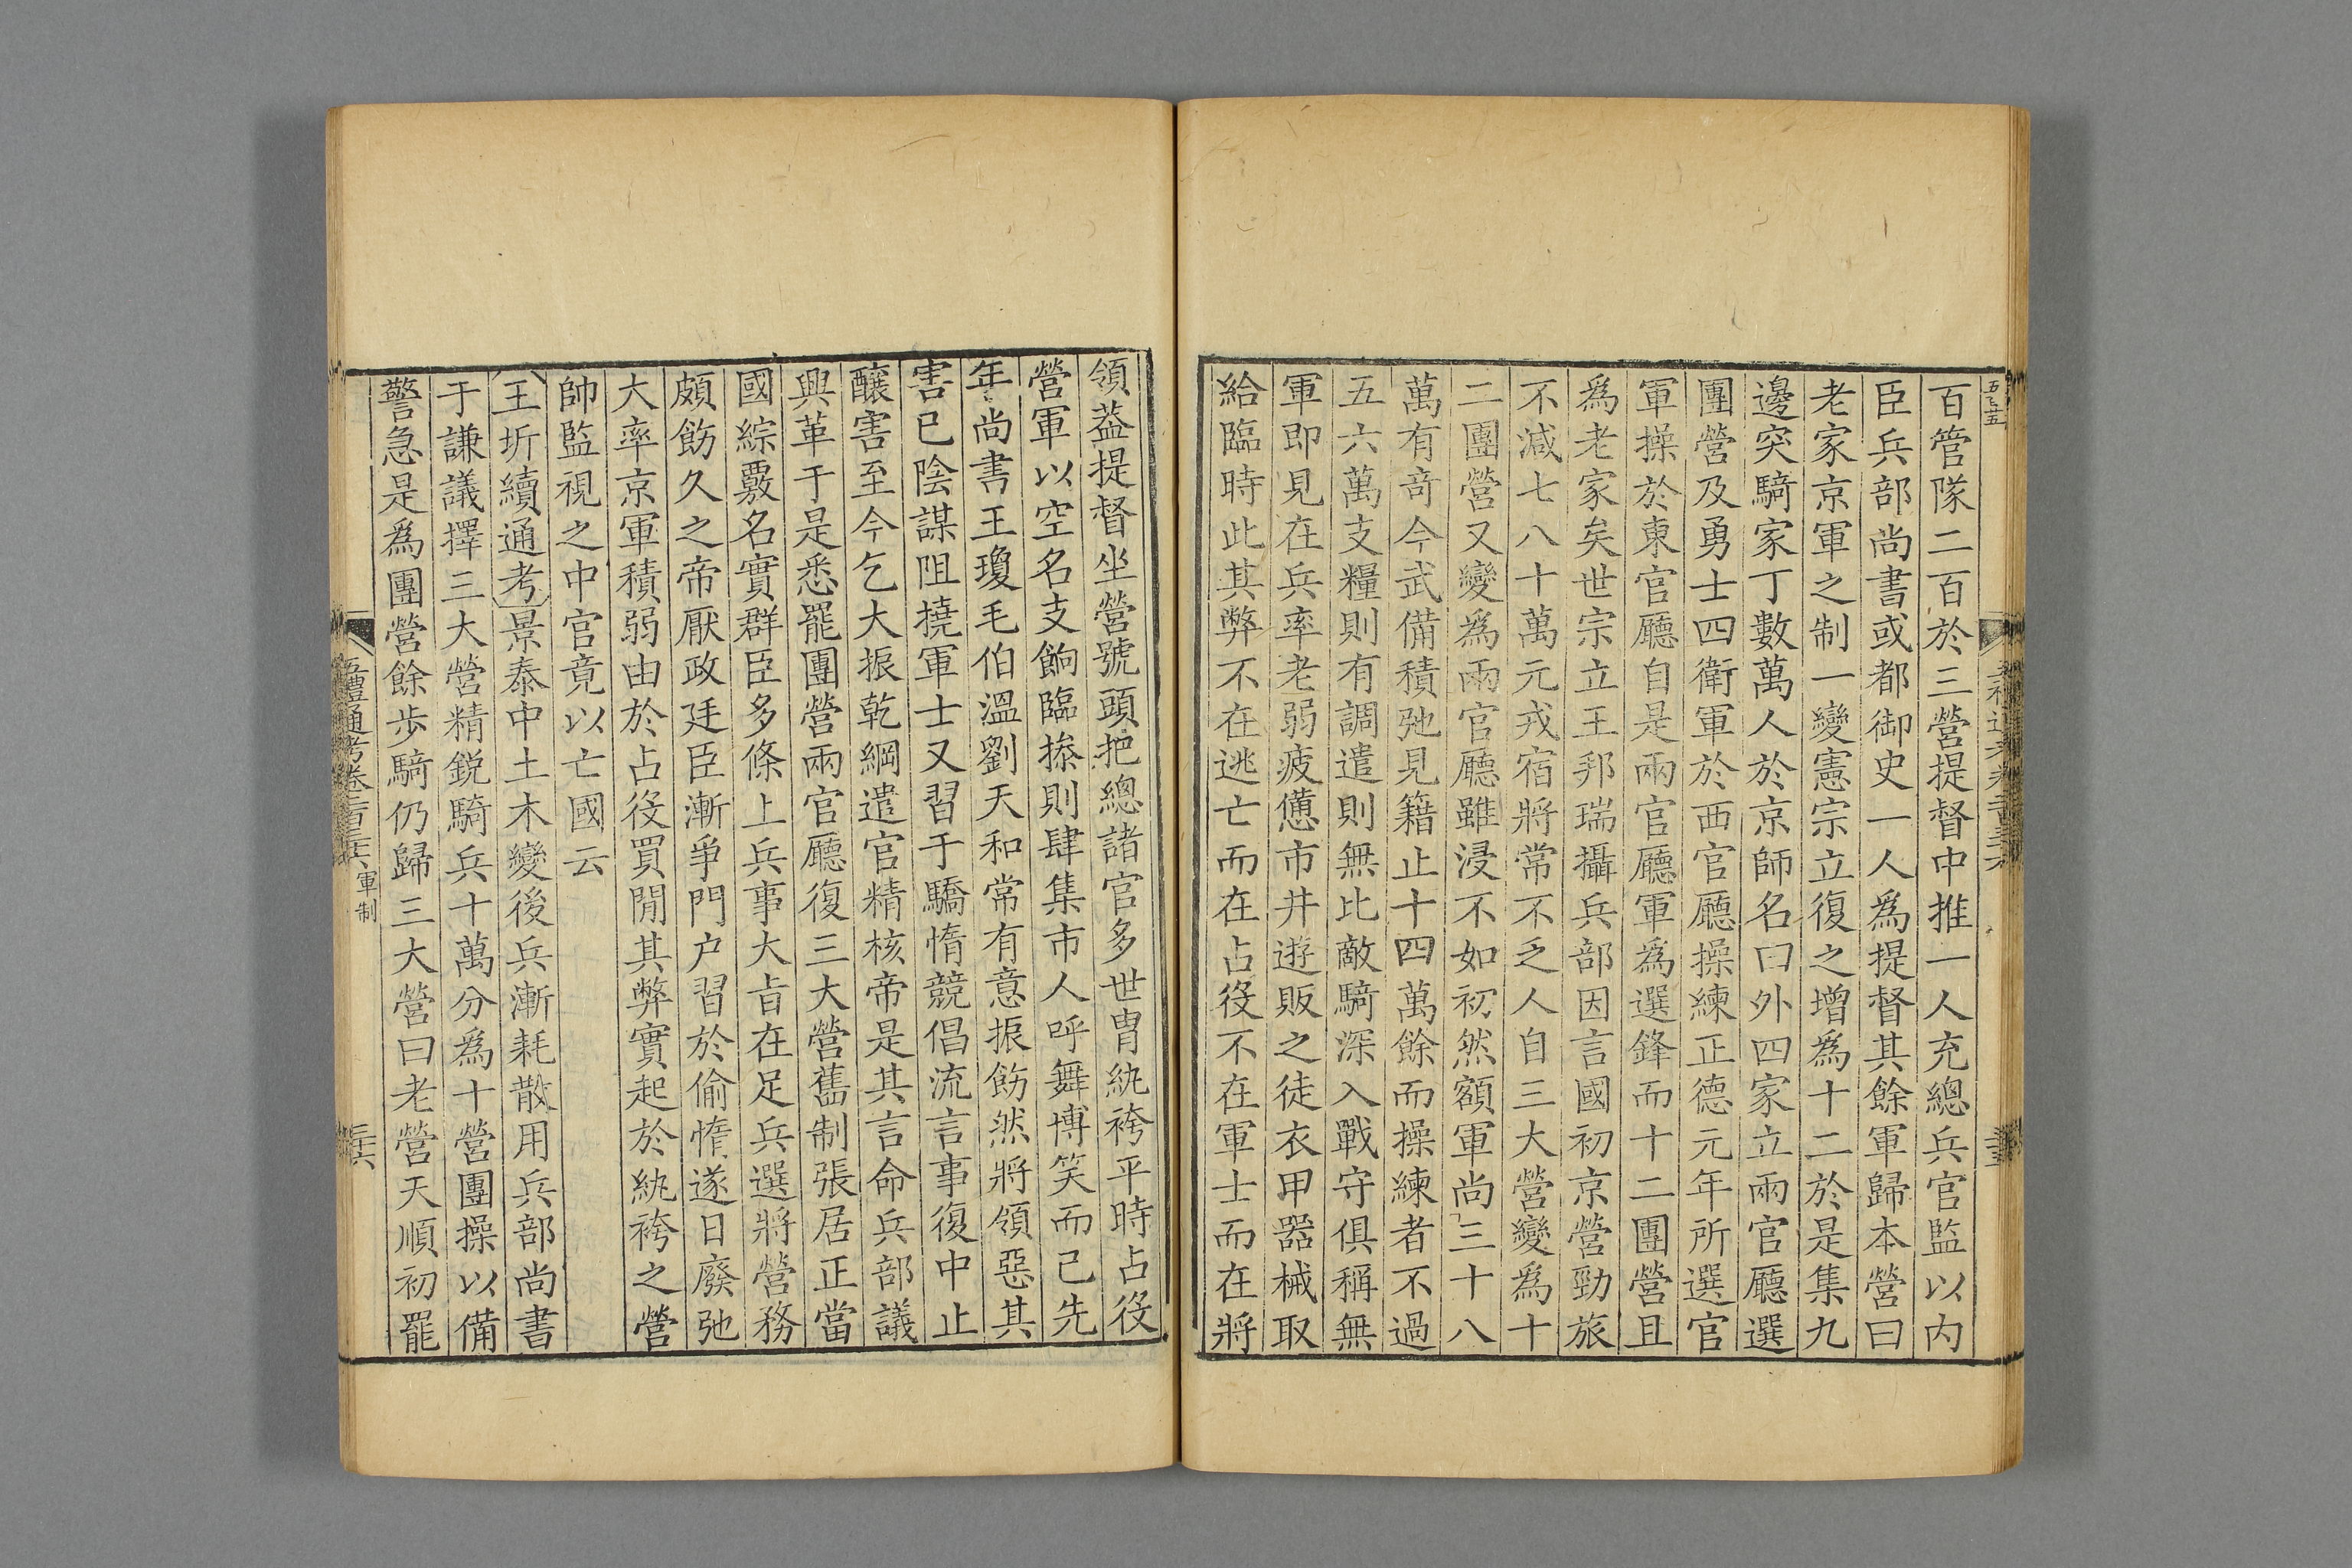 百管隊二百於三營提督中推一人充總兵官監以内
臣兵部尚書或都御史一人爲提督其餘軍歸本營曰
老家京軍之制一變憲宗立復之增爲十二於是集九
邊突騎家丁數萬人於京師名曰外四家立兩官廳選
團營及勇士四衛軍於西官廳操練正德元年所選官
軍操於東官廳自是兩官廳軍爲選鋒而十二團營且
爲老家矣世宗立王邦瑞攝兵部因言國初京營勁旅
不減七八十萬元戎宿將常不乏人自三大營變爲十
二團營又變爲兩官廳雖浸不如初然額軍尚三十八
萬有奇今武備積弛見籍止十四萬餘而操練者不過
五六萬支糧則有調遣則無比敵騎深入戰守俱稱無
軍即見在兵率老弱疲憊市井遊販之徒衣甲器械取
給臨時此其弊不在逃亡而在占役不在軍士而在將
領葢提督坐營號頭把總諸官多世胄紈袴平時占役
營軍以空名支餉臨操則肆集市人呼舞博笑而已先
年尚書王瓊毛伯溫劉天和常有意振飭然將領惡其
害已陰謀阻撓軍士又習于驕惰競倡流言事復中止
釀害至今乞大振乾綱遣官精核帝是其言命兵部議
興革于是悉罷團營兩官廳復三大營舊制張居正當
國綜覈名實群臣多條上兵事大旨在足兵選將營務
頗飭久之帝厭政廷臣漸爭門户習於偷惰遂日廢弛
大率京軍積弱由於占役買閒其弊實起於紈袴之營
帥監視之中官竟以亡國云
王圻續通考景泰中土木變後兵漸耗散用兵部尚書
于謙議擇三大營精鋭騎兵十萬分爲十營團操以備
警急是爲團營餘步騎仍歸三大營曰老營天順初罷
五禮通考卷二百三十六 軍制
三六